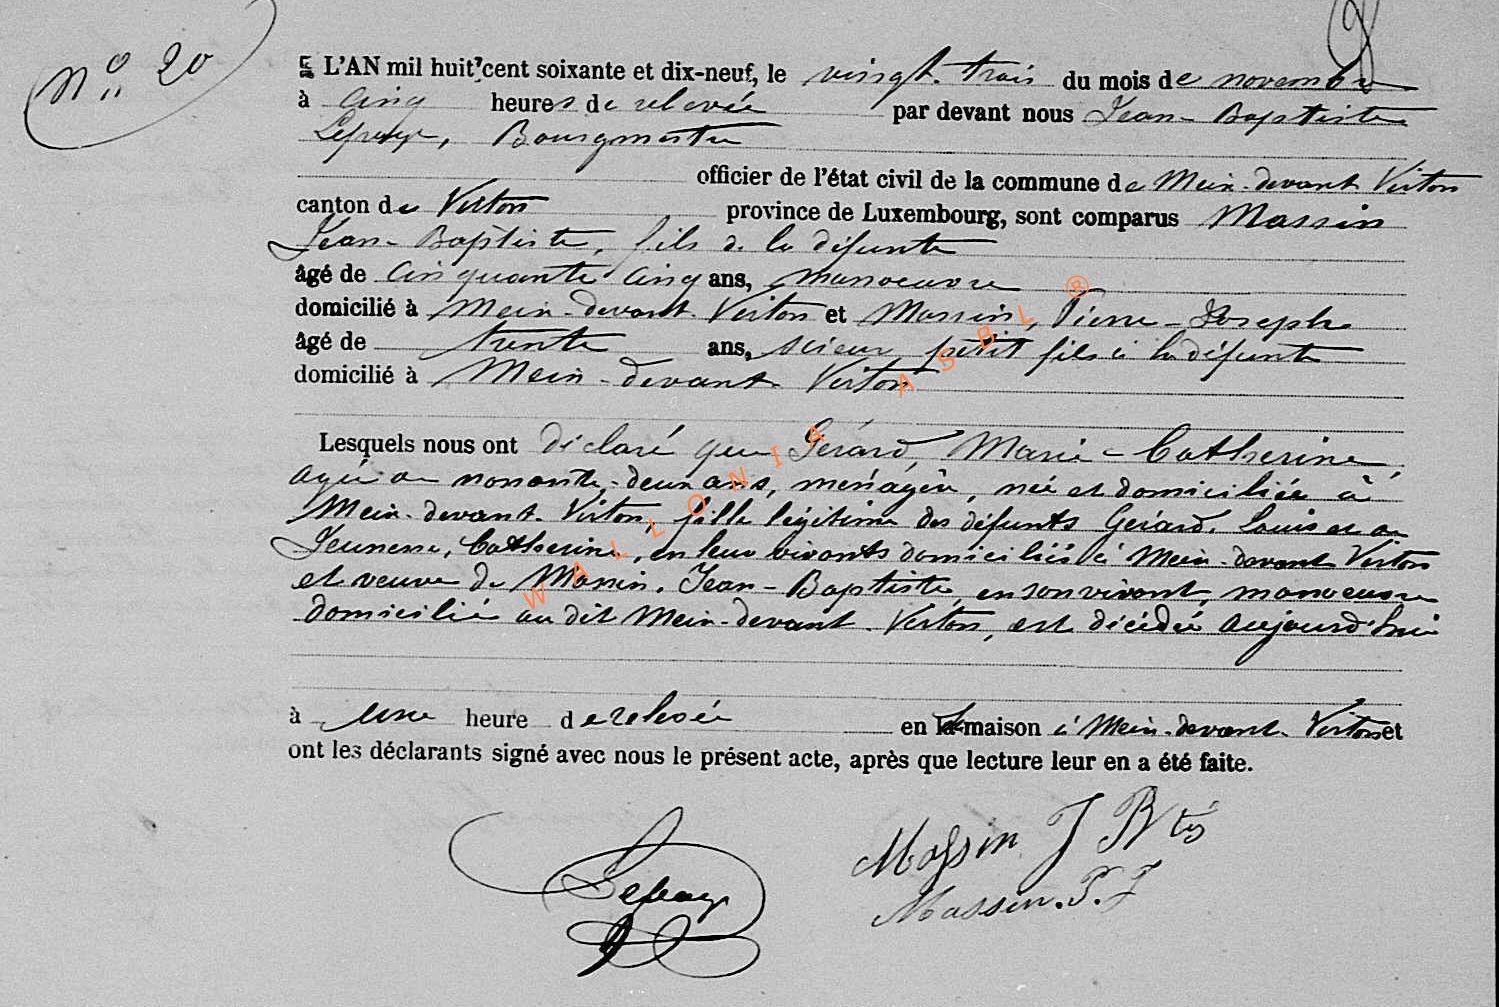 N° 20
L'AN mil huit cent soixante et dix-neuf, le vingt-trois du mois de novembre
à cinq heures de relevée par devant nous Jean-Baptiste
Lepage, Bourgmestre
officier de l'état civil de la commune de Meix-devant-Virton
canton de Virton province de Luxembourg, sont comparus Massin
Jean-Baptiste, fils de la défunte
âgé de cinquante cinq ans, manoeuvre
domicilié à Meix-devant-Virton et Massin, Pierre-Joseph
âgé de trente ans, scieur, petit fils à la défunte
domicilié à Meix-devant-Virton
Lesquels nous ont déclaré que Gérard, Marie-Catherine,
agée de nonante-deux ans, ménagère, née et domiciliée à
Meix-devant-Virton, fille légitime des défunts Gérard, Louis et de
Jeunesse, Catherine, en leur vivants domiciliés à Meix-devant Virton
et veuve de Massin, Jean-Baptiste, en son vivant, manoeuvre
domicilié au dit Meix-devant-Virton, est décédée aujourd'hui
à une heure de relevée en la maison à Meix-devant-Virton et
ont les déclarants signé avec nous le présent acte, après que lecture leur en a été faite.
Lepage
Massin J Btis
Massin. P. J
WALLONIA ASBL ®